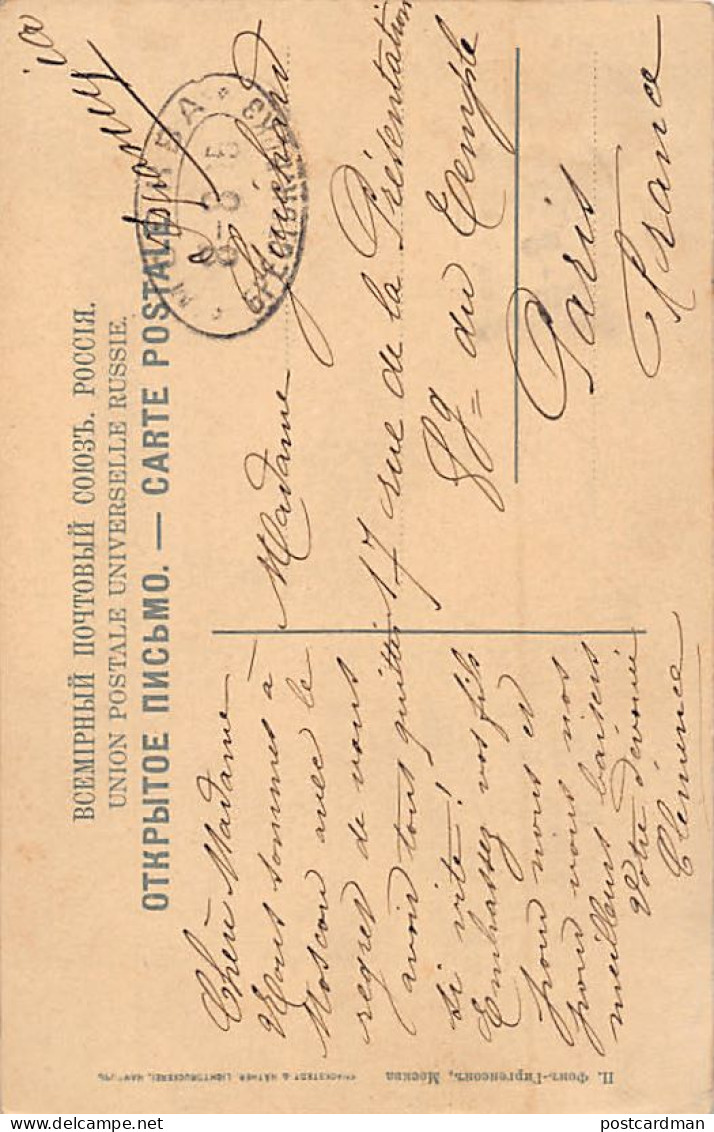 ВСЕМІРНЫЙ ПОЧТОВЫЙ СОЮЗЪ. РОССІЯ.
UNION POSTALE UNIVERSELLE RUSSIE.
ОТКРЫТОЕ ПИСЬМО. — CARTE POSTALE
Chère Madame
Nous sommes à
Moscou avec le
regret de vous
avoir tous quittés
si vite!
Embrassez vos fils
pour nous et
pour vous nos
meilleurs baisers
Votre dévouée
Clémence
Madame Guichard
17 rue de la Présentation
Fg = du Temple
Paris
France
МОСКВА
П. Фонъ-Гиргенсонъ, Москва
KNACKSTEDT & NÄTHER LICHTDRUCKEREI, HAMBURG
postcardman